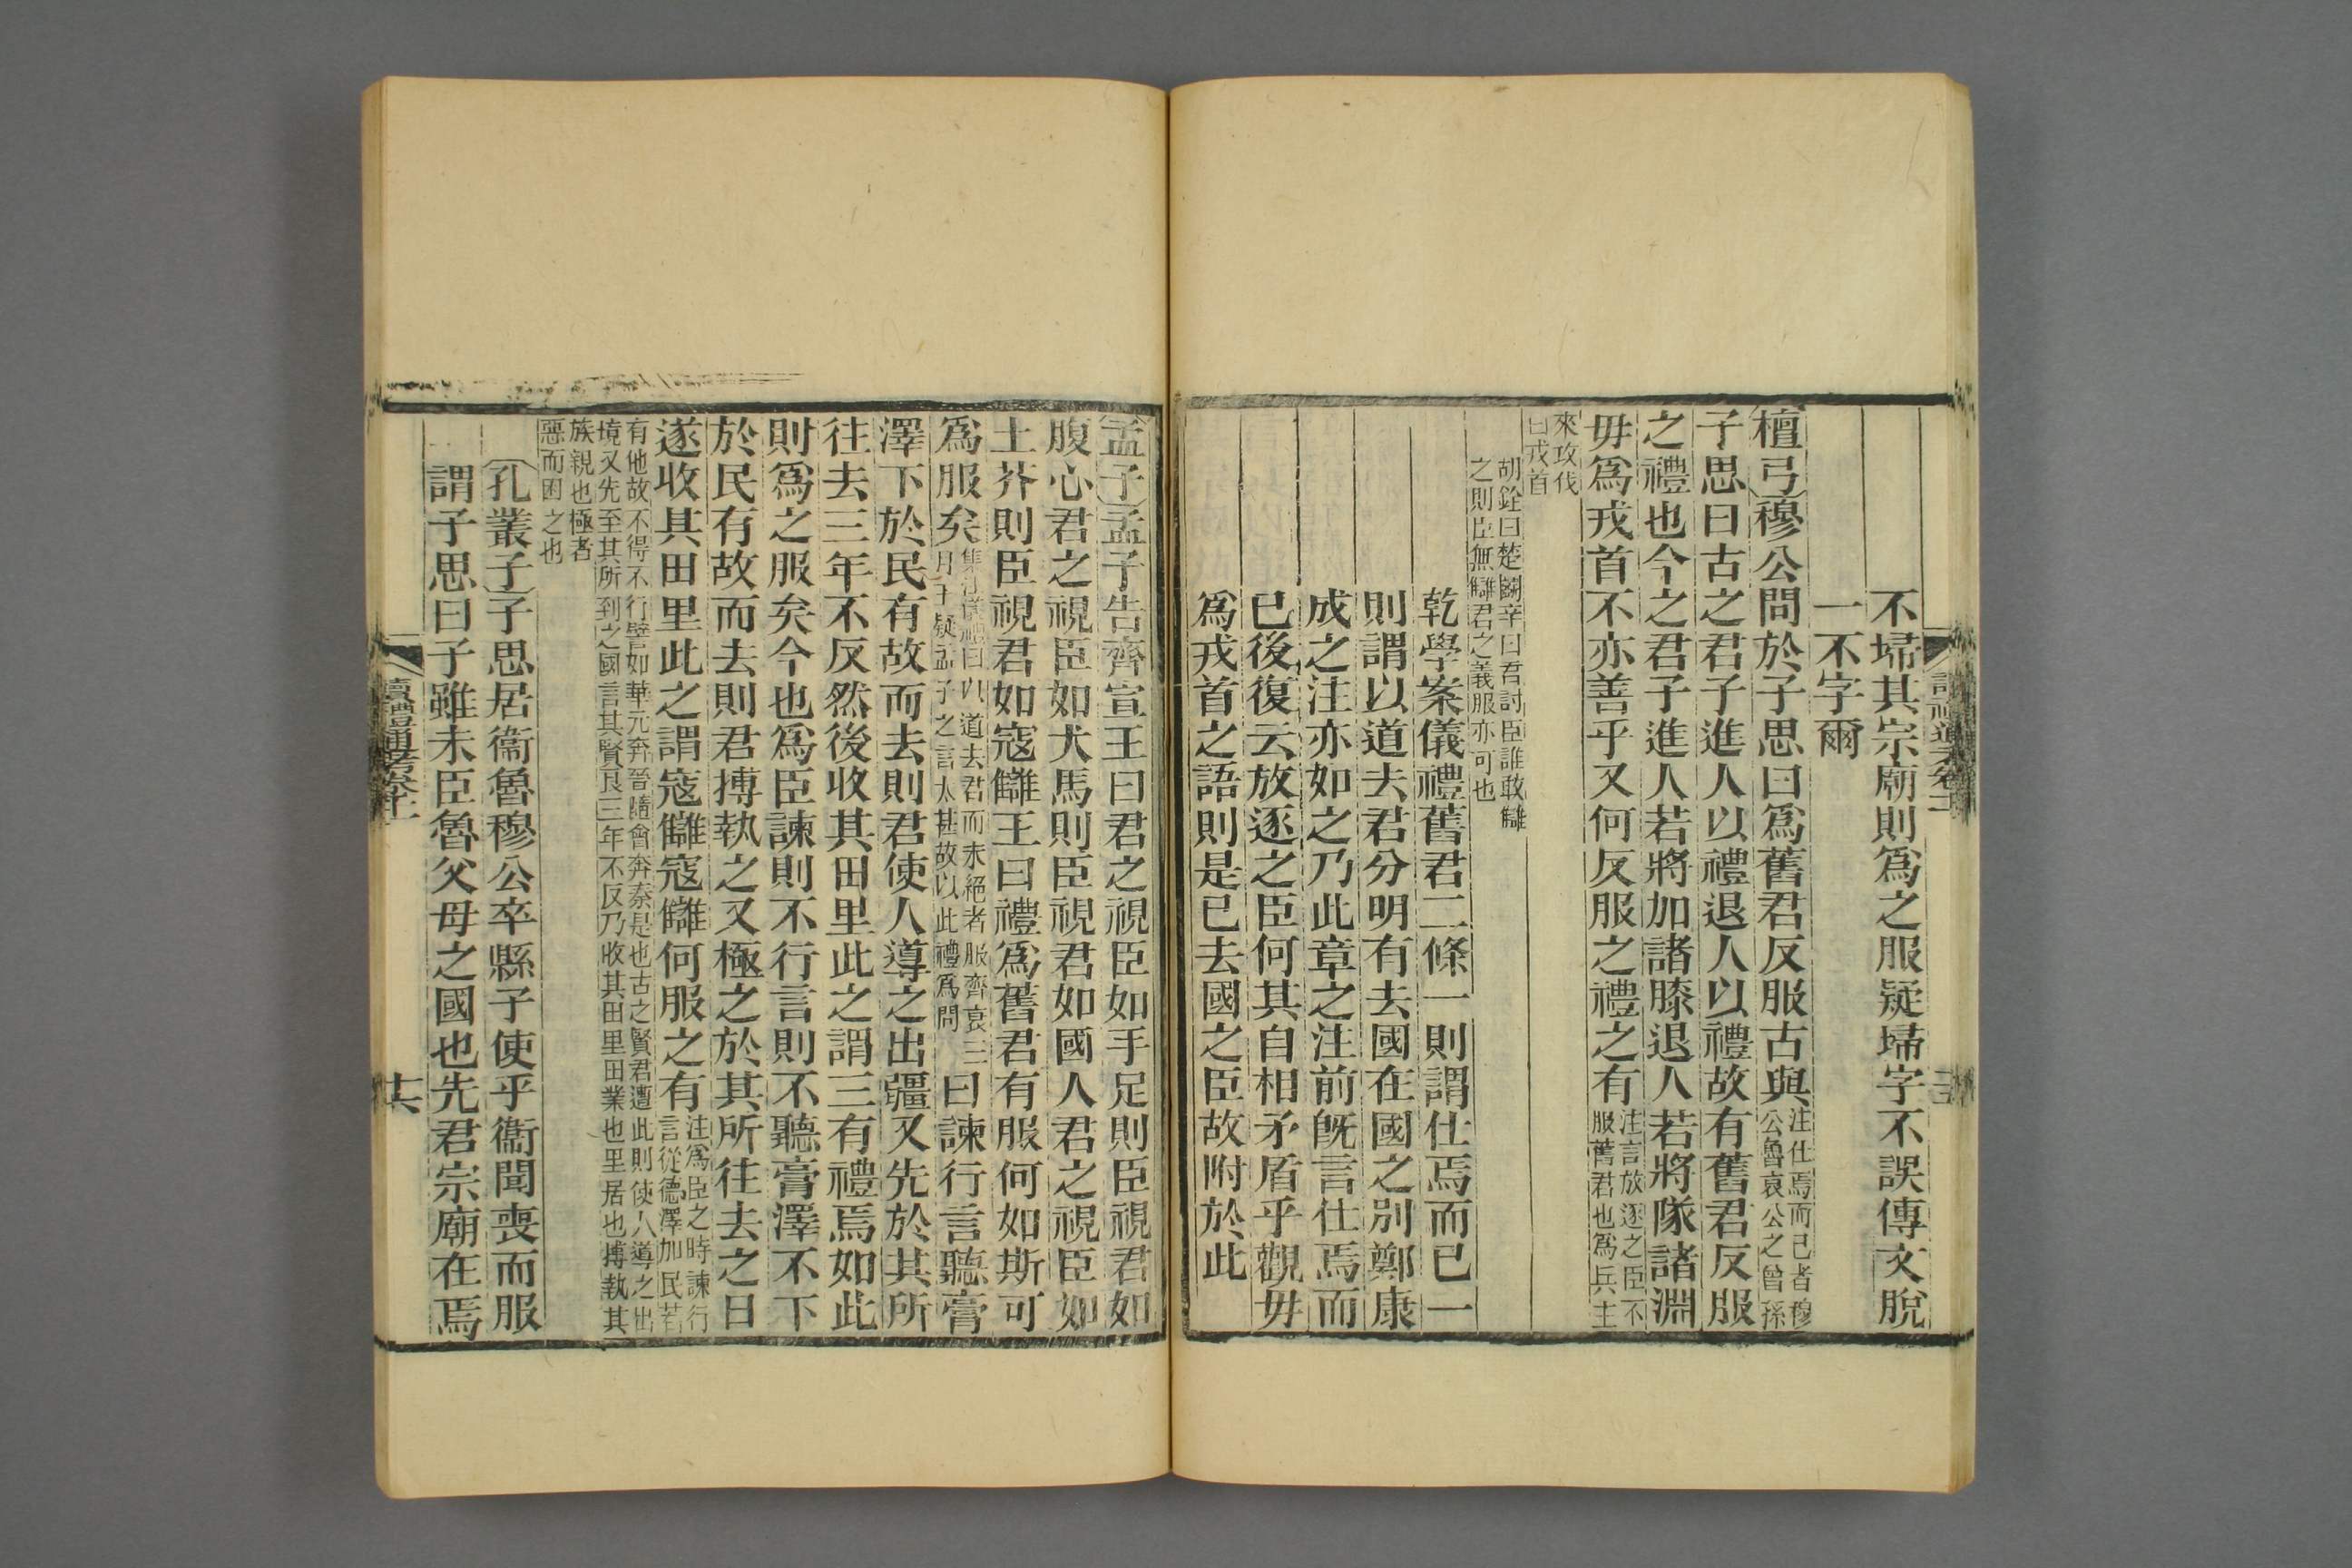 不埽其宗廟則爲之服疑埽字不誤傳文脫
一不字爾
檀弓穆公問於子思曰爲舊君反服古與
注仕焉而已者穆
公魯哀公之曾孫
子思曰古之君子進人以禮退人以禮故有舊君反服
之禮也今之君子進人若將加諸膝退人若將隊諸淵
毋爲戎首不亦善乎又何反服之禮之有
注言放逐之臣不
服舊君也爲兵主
來攻伐
曰戎首
胡銓曰楚鬭辛曰君討臣誰敢讎
之則臣無讎君之義服亦可也
乾學案儀禮舊君二條一則謂仕焉而已一
則謂以道去君分明有去國在國之別鄭康
成之注亦如之乃此章之注前旣言仕焉而
已後復云放逐之臣何其自相矛盾乎觀毋
爲戎首之語則是已去國之臣故附於此
孟子孟子告齊宣王曰君之視臣如手足則臣視君如
腹心君之視臣如犬馬則臣視君如國人君之視臣如
土芥則臣視君如寇讎王曰禮爲舊君有服何如斯可
爲服矣
集注儀禮曰以道去君而未絕者服齊衰三
月王疑孟子之言太甚故以此禮爲問
曰諫行言聽膏
澤下於民有故而去則君使人導之出疆又先於其所
往去三年不反然後收其田里此之謂三有禮焉如此
則爲之服矣今也爲臣諫則不行言則不聽膏澤不下
於民有故而去則君搏執之又極之於其所往去之日
遂收其田里此之謂寇讎寇讎何服之有
注爲臣之時諫行
言從德澤加民若
有他故不得不行譬如華元奔晉隨會奔秦是也古之賢君遭此則使人導之出
境又先至其所到之國言其賢良三年不反乃收其田里田業也里居也搏執其
族親也極者
惡而困之也
孔叢子子思居衞魯穆公卒縣子使乎衞聞喪而服
謂子思曰子雖未臣魯父母之國也先君宗廟在焉
讀禮通考卷十一
共